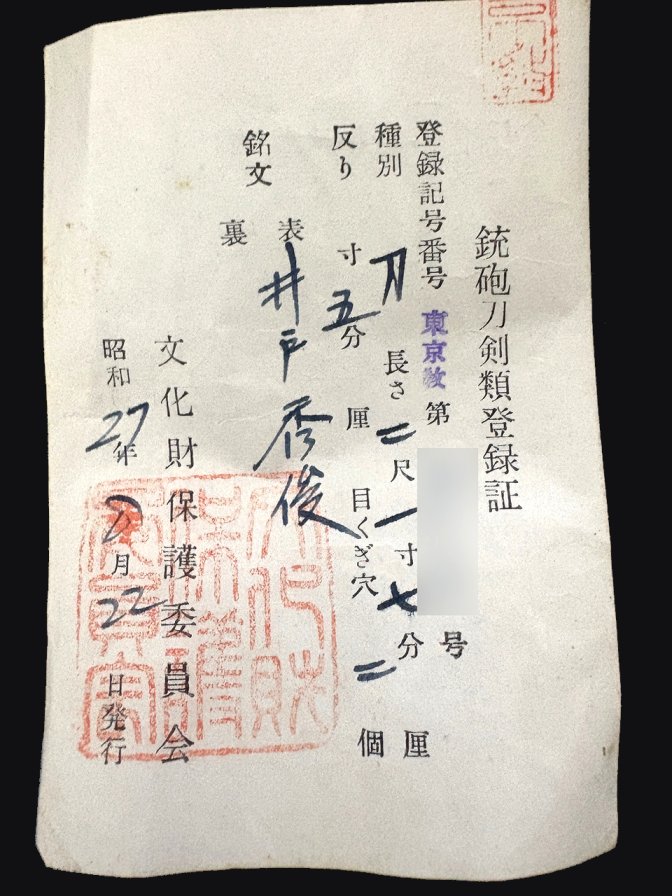 銃砲刀剣類登録証
登録記号番号 東京教 第 号
種別 刀 長さ 二尺一寸七分 厘
反り 寸五分 厘 目くぎ穴 二個
銘文 表 井戸秀俊
裏
文化財保護委員会
昭和27年 月22日発行